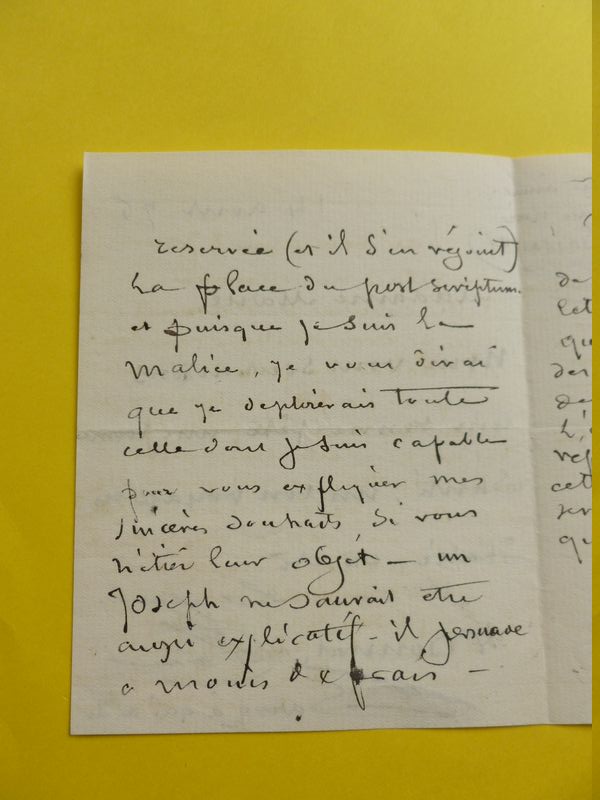 reservée (et il s'en réjouit)
La place du post scriptum.
et puisque je suis la
malice, je vous dirai
que je deploierais toute
celle dont je suis capable
pour vous expliquer mes
sincères souhaits, si vous
n'étiez leur objet — un
Joseph ne saurait etre
aussi explicatif - il persuade
a moins de frais —
de
let
qu
des
de
ref
cet
ser
qu